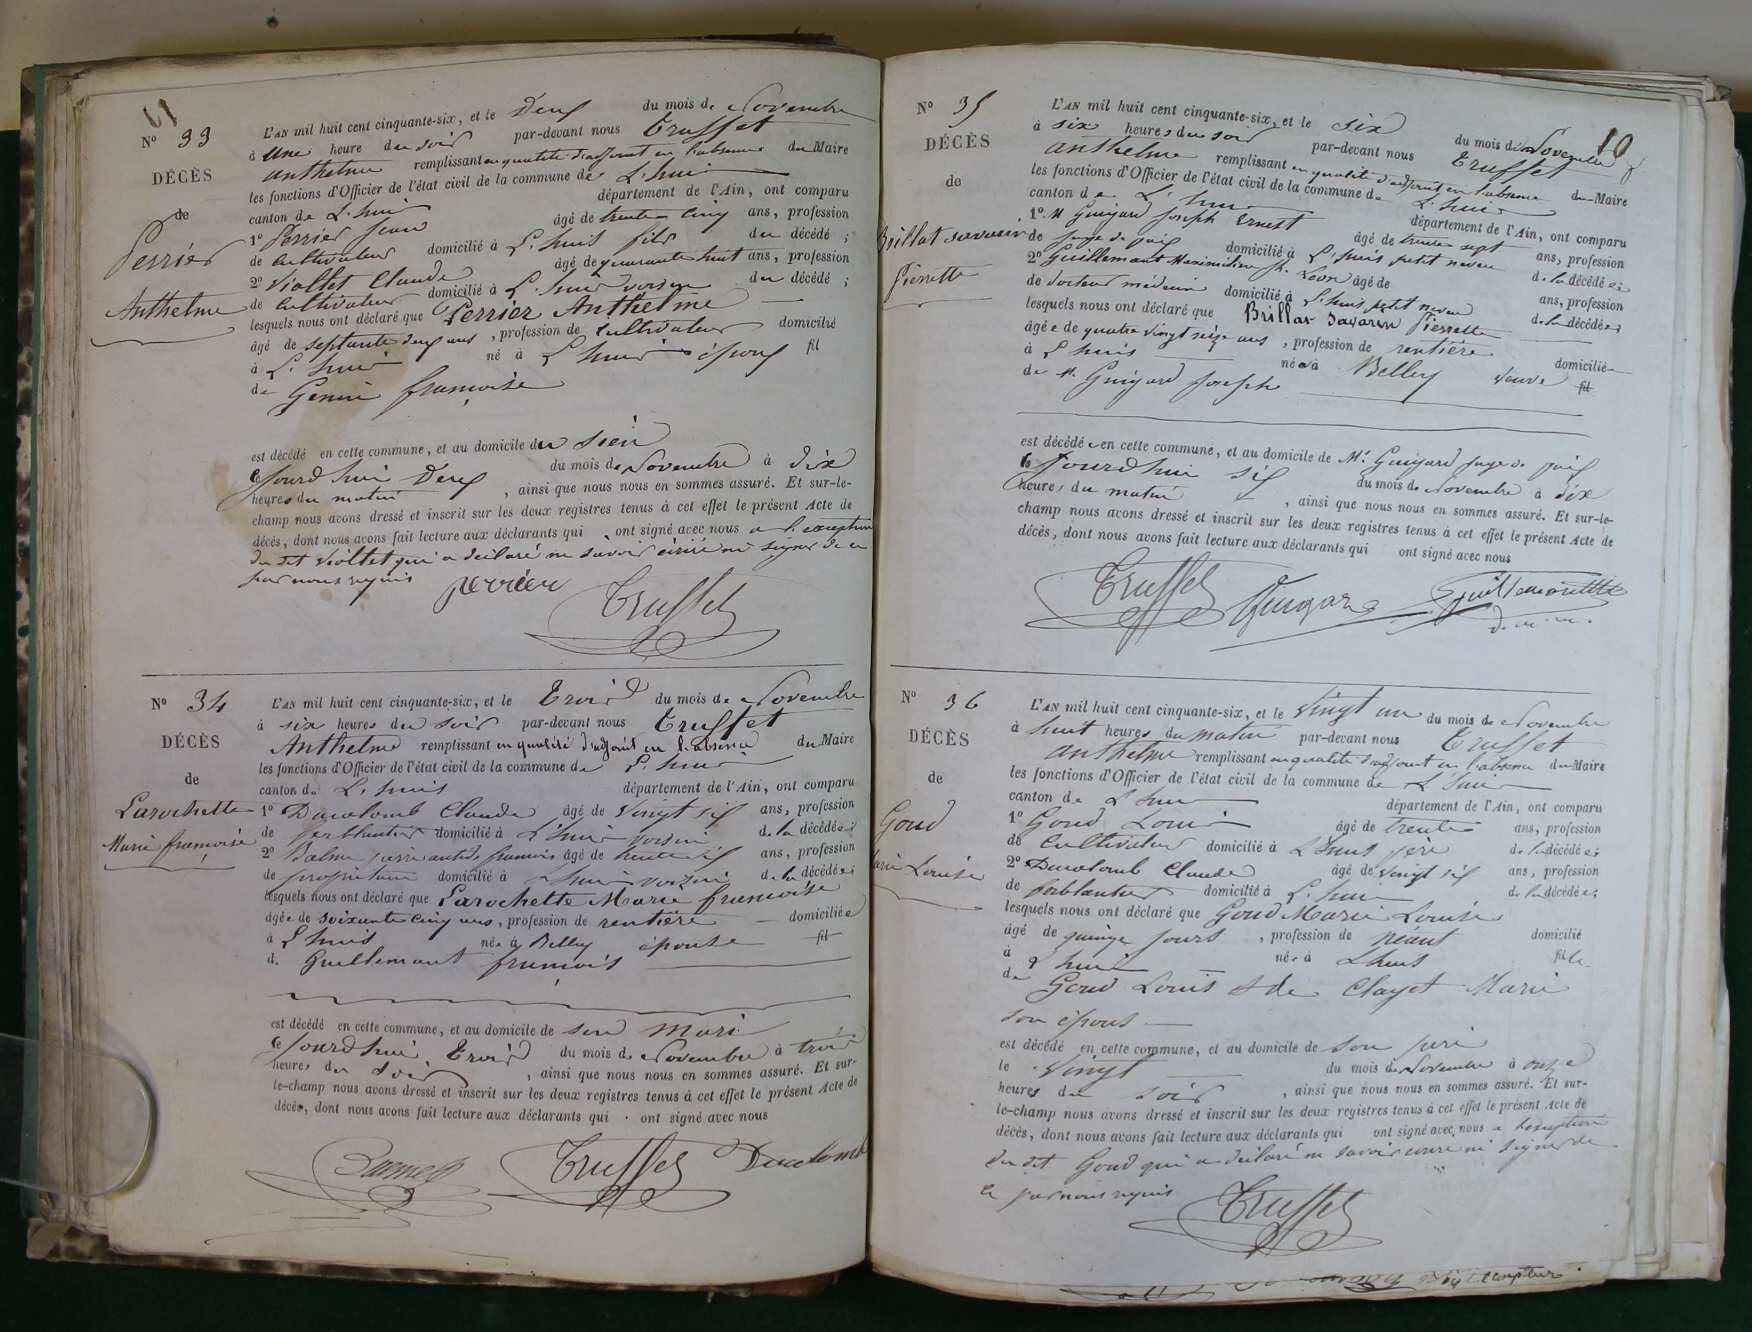 N° 33
DÉCÈS
de
Perrier
Anthelme
L'AN mil huit cent cinquante-six, et le Deux du mois de Novembre
à une heure du soir par-devant nous Truffet
anthelme remplissant en qualité d'adjoint en l'absence du Maire
les fonctions d'Officier de l'état civil de la commune de L'huis
canton de L'huis département de l'Ain, ont comparu
1° Perrier Jean âgé de trente cinq ans, profession
de Cultivateur domicilié à L'huis fils du décédé ;
2° Viollet Claude âgé de quarante huit ans, profession
de Cultivateur domicilié à L'huis voisin du décédé ;
lesquels nous ont déclaré que Perrier Anthelme
âgé de septante deux ans, profession de Cultivateur domicilié
à L'huis né à L'huis époux fil
de Genin françoise
est décédé en cette commune, et au domicile du sien
Ce Jourd'hui Deux du mois de Novembre à dix
heures du matin, ainsi que nous nous en sommes assuré. Et sur-le-
champ nous avons dressé et inscrit sur les deux registres tenus à cet effet le présent Acte de
décès, dont nous avons fait lecture aux déclarants qui ont signé avec nous a l'exception
du dit Viollet qui a declaré ne savoir écrire ni signer de ce
par nous requis
perrier Truffet
N° 34
DÉCÈS
de
Larochette
Marie françoise
L'AN mil huit cent cinquante-six, et le Trois du mois de Novembre
à six heures du soir par-devant nous Truffet
Anthelme remplissant en qualité d'adjoint en l'absence du Maire
les fonctions d'Officier de l'état civil de la commune de L'huis
canton de L'huis département de l'Ain, ont comparu
1° Ducolomb Claude âgé de vingt six ans, profession
de ferblantier domicilié à L'huis voisin de la décédée ;
2° Balme françois âgé de trente six ans, profession
de propriétaire domicilié à L'huis voisin de la décédée ;
lesquels nous ont déclaré que Larochette Marie françoise
âgée de soixante cinq ans, profession de rentière domiciliée
à L'huis née à Belley épouse fil
de Guillemaut françois
est décédé en cette commune, et au domicile de son mari
Ce Jourd'hui Trois du mois de Novembre à trois
heures du soir, ainsi que nous nous en sommes assuré. Et sur-
le-champ nous avons dressé et inscrit sur les deux registres tenus à cet effet le présent Acte de
décès, dont nous avons fait lecture aux déclarants qui ont signé avec nous
Truffet Ducolomb
10
N° 35
DÉCÈS
de
Brillat savarin
Pierrette
L'AN mil huit cent cinquante-six, et le six du mois de Novembre
à six heures du soir par-devant nous Truffet
anthelme remplissant en qualité d'adjoint en l'absence du Maire
les fonctions d'Officier de l'état civil de la commune de L'huis
canton de L'huis département de l'Ain, ont comparu
1° M Guigard Joseph Ernest âgé de trente sept ans, profession
de juge de paix domicilié à L'huis petit neveu de la décédée ;
2° Guillemaut Maximilien Leon âgé de ans, profession
de docteur médecin domicilié à L'huis petit neveu de la décédée ;
lesquels nous ont déclaré que Brillat Savarin Pierrette
âgée de quatre vingt seize ans, profession de rentière domiciliée
à L'huis née à Belley veuve fil
de M. Guigard Joseph
est décédé en cette commune, et au domicile de Mr Guigard juge de paix
Ce Jourd'hui six du mois de Novembre à dix
heures du matin, ainsi que nous nous en sommes assuré. Et sur-le-
champ nous avons dressé et inscrit sur les deux registres tenus à cet effet le présent Acte de
décès, dont nous avons fait lecture aux déclarants qui ont signé avec nous
Truffet Guigard Guillemaut
d. m. m.
N° 36
DÉCÈS
de
Goud
Marie Louise
L'AN mil huit cent cinquante-six, et le vingt un du mois de Novembre
à huit heures du matin par-devant nous Truffet
anthelme remplissant en qualité d'adjoint en l'absence du Maire
les fonctions d'Officier de l'état civil de la commune de L'huis
canton de L'huis département de l'Ain, ont comparu
1° Goud Louis âgé de trente ans, profession
de Cultivateur domicilié à L'huis père de la décédée ;
2° Ducolomb Claude âgé de vingt six ans, profession
de ferblantier domicilié à L'huis de la décédée ;
lesquels nous ont déclaré que Goud Marie Louise
âgé de quinze jours, profession de néant domicilié
à L'huis née à Lhuis fille
de Goud Louis et de Clayet Marie
son épouse
est décédé en cette commune, et au domicile de son père
le vingt du mois de Novembre à onze
heures du soir, ainsi que nous nous en sommes assuré. Et sur-
le-champ nous avons dressé et inscrit sur les deux registres tenus à cet effet le présent Acte de
décès, dont nous avons fait lecture aux déclarants qui ont signé avec nous a l'exception
du dit Goud qui a declaré ne savoir écrire ni signer de
ce par nous requis
Truffet